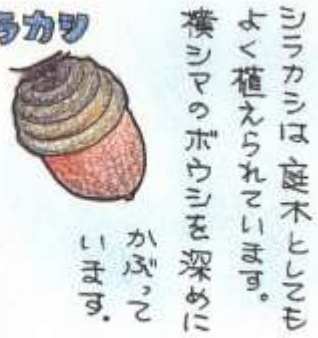 シラカシは庭木としても
よく植えられています。
横シマのボウシを深めに
かぶって
います。
ラカシ